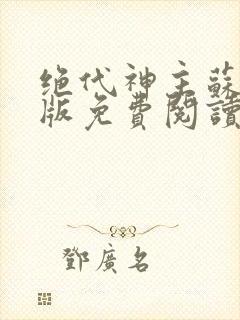 绝代神主蘇
版免費閱讀
鄧廣名